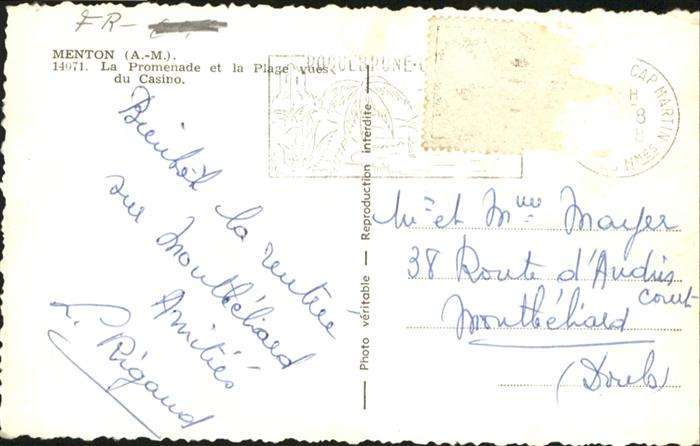 FR-
MENTON (A.-M.).
14071. La Promenade et la Plage vues
du Casino.
CAP MARTIN
8
Bientôt la rentrée
sur Montbéliard
Amitiés
L. Rigaud
Photo véritable — Reproduction interdite
Mr et Mme Mayer
38 Route d'Audincourt
Montbéliard
(Doubs)